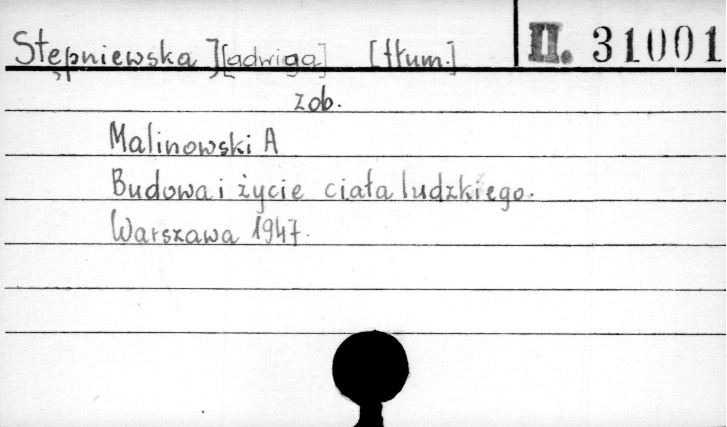 Stępniewska J[adwiga] [tłum.] II. 31001
zob.
Malinowski A
Budowa i życie ciała ludzkiego.
Warszawa 1947.